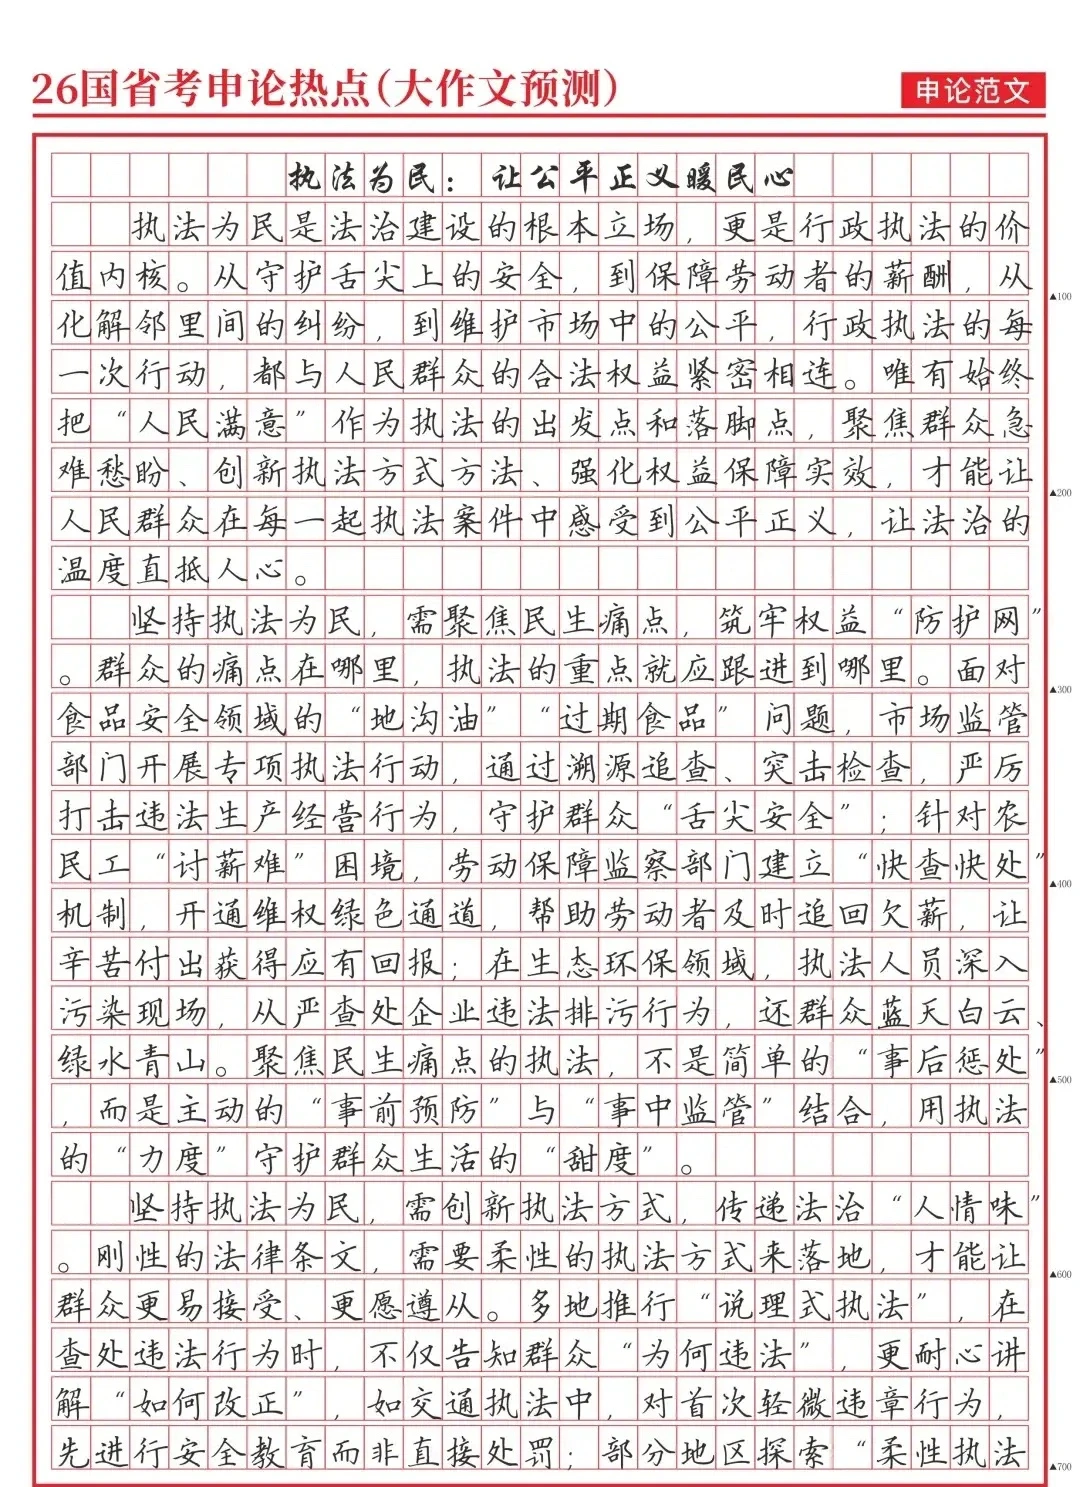 26国省考申论热点(大作文预测)
申论范文
执法为民：让公平正义暖民心
执法为民是法治建设的根本立场，更是行政执法的价
值内核。从守护舌尖上的安全，到保障劳动者的薪酬，从
▲100
化解邻里间的纠纷，到维护市场中的公平，行政执法的每
一次行动，都与人民群众的合法权益紧密相连。唯有始终
把“人民满意”作为执法的出发点和落脚点，聚焦群众急
难愁盼、创新执法方式方法、强化权益保障实效，才能让
▲200
人民群众在每一起执法案件中感受到公平正义，让法治的
温度直抵人心。
坚持执法为民，需聚焦民生痛点，筑牢权益“防护网”
。群众的痛点在哪里，执法的重点就应跟进到哪里。面对
▲300
食品安全领域的“地沟油”“过期食品”问题，市场监管
部门开展专项执法行动，通过溯源追查、突击检查，严厉
打击违法生产经营行为，守护群众“舌尖安全”；针对农
民工“讨薪难”困境，劳动保障监察部门建立“快查快处”
▲400
机制，开通维权绿色通道，帮助劳动者及时追回欠薪，让
辛苦付出获得应有回报；在生态环保领域，执法人员深入
污染现场，从严查处企业违法排污行为，还群众蓝天白云、
绿水青山。聚焦民生痛点的执法，不是简单的“事后惩处”
▲500
，而是主动的“事前预防”与“事中监管”结合，用执法
的“力度”守护群众生活的“甜度”。
坚持执法为民，需创新执法方式，传递法治“人情味”
。刚性的法律条文，需要柔性的执法方式来落地，才能让
▲600
群众更易接受、更愿遵从。多地推行“说理式执法”，在
查处违法行为时，不仅告知群众“为何违法”，更耐心讲
解“如何改正”，如交通执法中，对首次轻微违章行为，
先进行安全教育而非直接处罚；部分地区探索“柔性执法
▲700